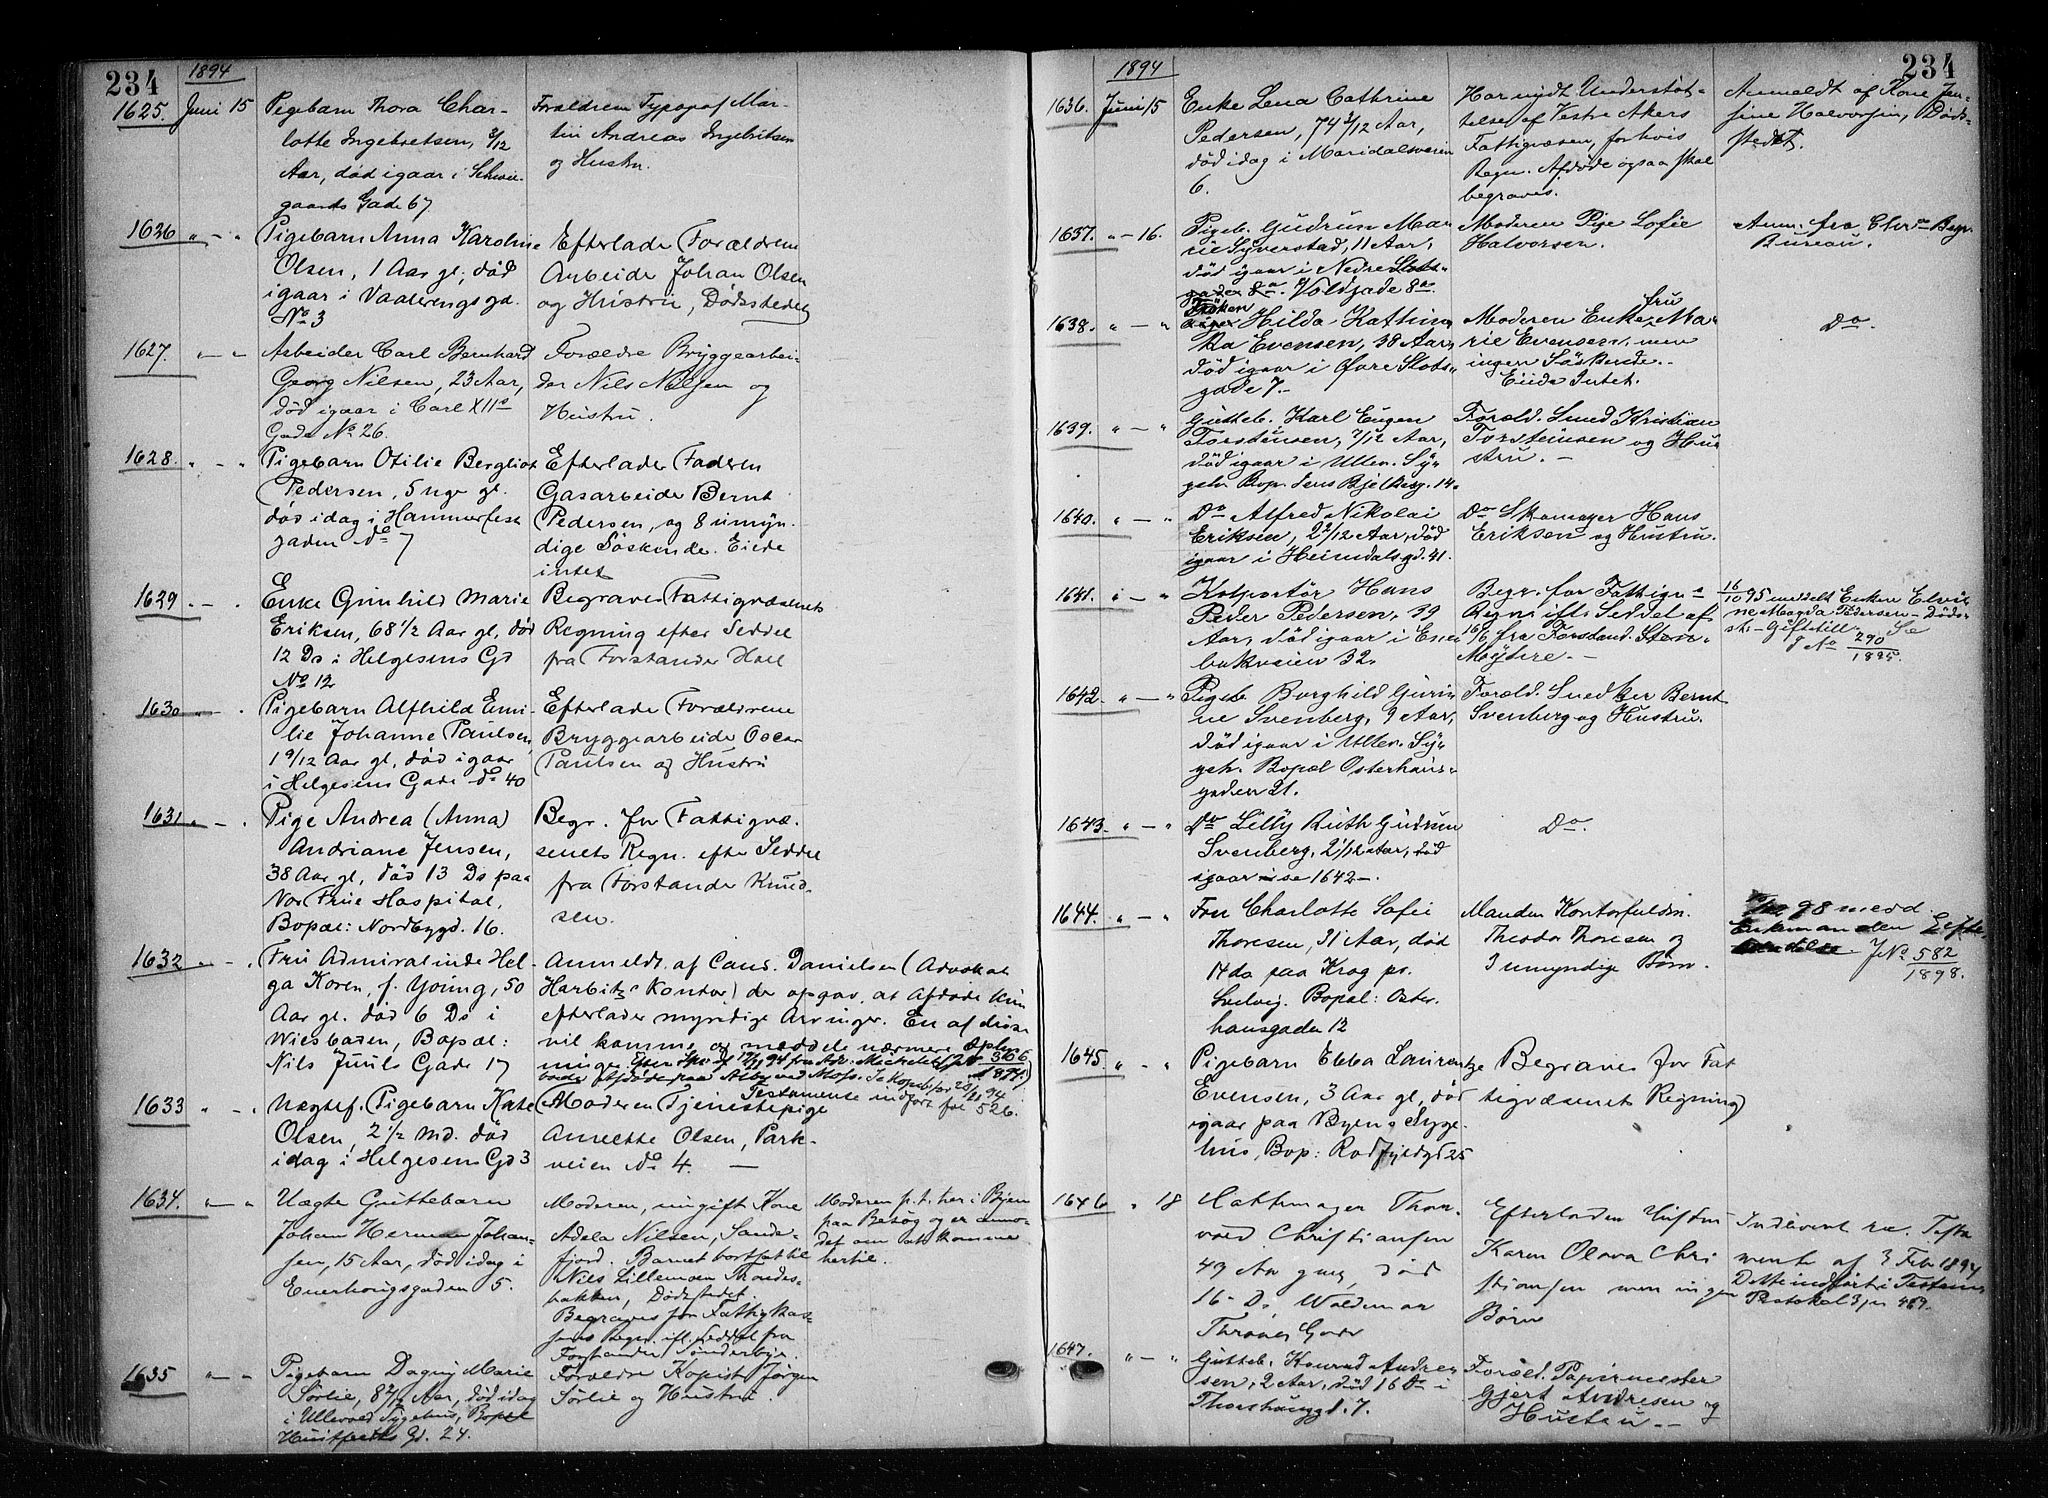 234
1894
1625. Juni 15
Pigebarn Thora Char-
lotte Ingebretsen, 8/12
Aar, død igaar i Schwei-
gaards Gade 67
Forældrene Typograf Mar-
tin Andreas Ingebritsen
og Hustru.
1626 " - "
Pigebarn Anna Karoline
Olsen, 1 Aar gl., død
igaar i Vaalerengsgd.
No 3
Efterlader Forældrene
Arbeider Johan Olsen
og Hustru, Dødsstedet
1627. " - "
Arbeider Carl Bernhard
Georg Nilsen, 23 Aar,
død igaar i Carl XIIs
Gade No 26.
Forældre Bryggearbei-
der Nils Nilsen og
Hustru.
1628. " - "
Pigebarn Otilie Bergliot
Pedersen, 5 uge gl.
død idag i Hammerfest
gaden No 7
Efterlader Faderen
Gasarbeider Bernt
Pedersen, og 8 umyn-
dige Søskende. Eiede
intet
1629 " - "
Enke Gunhild Marie
Eriksen, 68 1/2 Aar gl, død
12 Ds i Helgesens Gd
No 12
Begraves Fattigvæsenets
Regning efter Seddel
fra Forstander Holl
1630 " - "
Pigebarn Alfhild Emi-
lie Johanne Paulsen,
1 9/12 Aar gl, død igaar
i Helgesens Gade No 40
Efterlade Forældrene
Bryggearbeider Oscar
Paulsen og Hustru
1631 " - "
Pige Andrea (Anna)
Andriane Jensen,
38 Aar gl, død 13 Ds paa
Vor Frue Hospital,
Bopæl: Nordbygd. 16.
Begr. for Fattigvæ-
senets Regn. efter Seddel
fra Forstander Knud-
sen.
1632 " - "
Fru Admiralinde Hel-
ga Koren, f. Young, 50
Aar gl. død 6 Ds i
Wiesbaden, Bopæl:
Nils Juuls Gade 17
Anmeldt af Cand. Danielsen (Advokat
Harbitz's Kontor) der opgav, at Afdøde kun
efterlader myndige Arvinger. En af disse
vil komme og meddele nærmere Oplys-
ninger.
Testamente indført fol 526.
1633 " - "
Uægtef. Pigebarn Kate
Olsen, 2 1/2 Md. død
idag i Helgesens Gd 3
(Moderen Tjenestepige
Annette Olsen, Park-
veien No 4. —
1634. " - "
Uægte Guttebarn
Johan Herman Johan-
sen, 15 Aar, død idag i
Enerhougsgaden 5.
Moderen, nu gift Kone
Adela Nilsen, Sande-
fjord. Barnet bortsat til
Nils Lilleman Trondes-
bakken, Dødsstedet.
Begraves for Fattigkas-
sens Regn. ifl. Seddel fra
Forstander Sønderbye.
Moderen p.t. her i Byen
paa Besøg og er anmo-
det om at komme
hertil.
1635 " - "
Pigebarn Dagny Marie
Sørlie, 8 2/12 Aar, død idag
i Ullevold Sygehus, Bopel
Huitfeldts Gd. 24.
Forældre Kopist Jørgen
Sørlie og Hustru.
234
1894
1636. Juni 15
Enke Lena Cathrine
Pedersen, 74 3/12 Aar,
død idag i Maridalsveien
6.
Har nydt Understøt-
telse af Vestre Akers
Fattigvæsen, for hvis
Regn. Afdøde ogsaa skal
begraves.
Anmeldt af Kone Jen-
sine Halvorsen, Døds-
stedet.
1637. " - 16.
Pigeb. Gudrun Ma-
rie Syverstad, 11 Aar,
død igaar i Nedre Slots-
gaden 8a. Voldgade 8a.
Moderen Pige Sofie
Halvorsen.
Anm. fra Chra Begr.
Bureau.
1638. " - "
Frøken Hilda Kathin-
ka Evensen, 38 Aar,
død igaar i Øvre Slots-
gade 7.—
Moderen Enkefru Ma-
rie Evensen, men
ingen Søskende.—
Eiede Intet.
Do.
1639. " - "
Gutteb. Karl Eugen
Torstensen, 7/12 Aar,
død igaar i Ullev. Sy-
geh. Bop. Jens Bjelkesg. 14.
Foræld. Smed Kristian
Torstensen og Hus-
tru. —
1640. " - "
Do Alfred Nikolai
Eriksen, 2 2/12 Aar, død
igaar i Heimdalsgd. 41.
Do Skomager Hans
Eriksen og Hustru.
1641. " - "
Kolportør Hans
Peder Pedersen, 39
Aar, død igaar i Ene-
bakveien 32.
Begr. for Fattigv's
Regn. ifl. Seddel af
16/6 fra Forstand. Sten-
Møystre. —
16/10 95 meldt Enken Elvi-
ne Magda Pedersen Døds-
st.— Giftetill. Se
g No 290/1895.
1642 " - "
Pigeb. Borghild Guri-
ne Svenberg, 9 Aar,
død igaar i Ullev. Sy-
geh. Bopæl Osterhaus-
gaden 21.
Foræld. Snedker Bernt
Svenberg og Hustru.
1643. " - "
Do Lilly Ruth Gudrun
Svenberg, 2 1/12 Aar, død
igaar — se 1642 —.
Do.
1644. " - "
Fru Charlotte Sofie
Thoresen, 31 Aar, død
14 ds paa Krog pr.
Svelvig. Bopæl: Oster-
hausgaden 12
Manden Kontorfuldm.
Theodor Thoresen og
3 umyndige Børn
98 medd.
Enkemanden
JNo 582/1898.
1645 " - "
Pigebarn Ebba Laurentze
Evensen, 3 Aar gl, død
igaar paa Byens Syge-
hus, Bop: Rodfyldgd 25
Begraves for Fat
tigvæsenets Regning)
1646 " 18
Hattemager Thor-
vald Christiansen
49 Aar gml, død
16 Ds, Waldemar
Thranes Gade
Efterladen Hustru
Karen Olava Chri
stiansen men ingen
Børn
Indlevert Testa
mente af 3 Feb 1894
Dette indført i Testam
Protokol 3 fol 469.
1647. " - "
Gutteb. Konrad Andre-
sen, 2 Aar, død 16 Ds i
Thorshauggd. 7.
Foræld. Papirmester
Gjert Andresen og
Hustru —